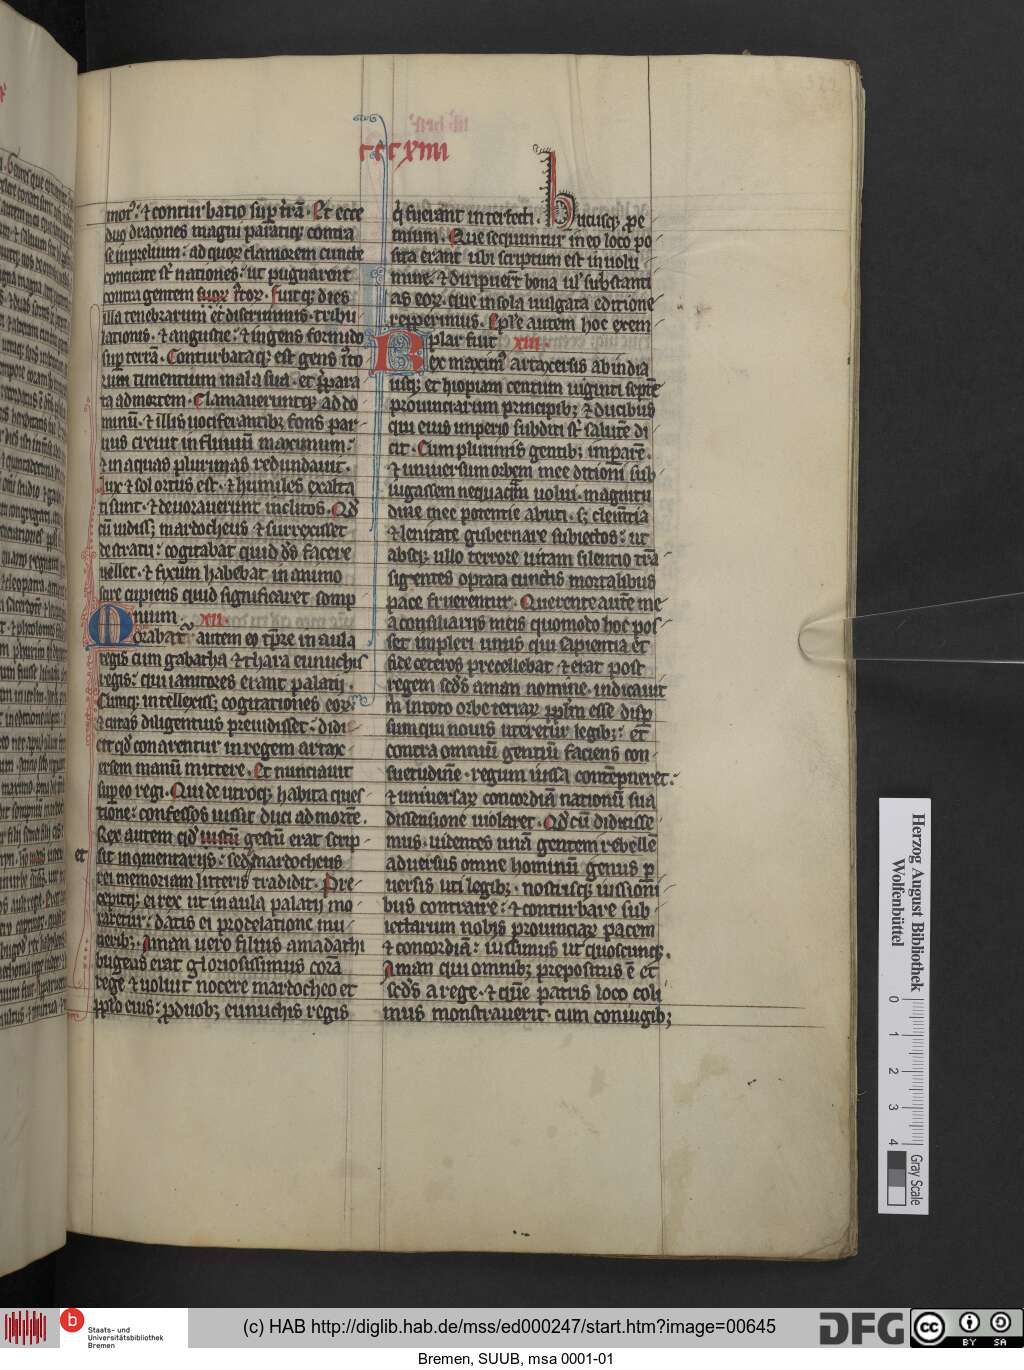 cccxiiii
mot9: ⁊ conturbatio sup t̄rā. Et ecce
duo dracones magni paratiq; contra
se in prelium: ad quoꝝ clamorem cuncte
concitate st̄ nationes: ut pugnarent
contra gentem iustoꝝ. fuitq; dies
illa tenebrarum et discriminis. tribu
lationis. ⁊ angustie: ⁊ ingens formido
sup terrā. Conturbataq; est gens
rum timentium mala sua. et p̄para
ta ad mortem. Clamaueruntq; ad do
minū. ⁊ illis uociferantib; fons par
uus creuit in fluuiū maximum:
⁊ in aquas plurimas redundauit.
lux ⁊ sol ortus est. ⁊ humiles exalta
ti sunt. ⁊ deuorauerunt inclitos. Qd̄
cū uidiss; mardocheus ⁊ surrexisset
de stratu: cogitabat quid d̄s facere
uellet. ⁊ fixum habebat in animo
scire cupiens quid significaret somp
nium. xii.
Morabat̄ autem eo tp̄re in aula
regis cum gabatha ⁊ thara eunuchis
regis: qui ianitores erant palatii.
Cumq; intellexiss; cogitationes eoꝝ:
⁊ curas diligentius preuidisset: didi
cit qd̄ conarentur in regem artax
ersem manū mittere. Et nunciauit
sup eo regi. Qui de utroq; habita ques
tione: confessos iussit duci ad mortē.
Rex autem qd̄ gestū erat scrip
sit in ɔmentariis: sed mardocheus
et
rei memoriam litteris tradidit. Pre
cepitq; ei rex ut in aula palatii mo
raretur: datis ei pro delatione mu
nerib;. Aman uero filius amadathi
bugeus erat gloriosissimus corā
rege ⁊ uoluit nocere mardocheo et
pp̄lo eius: p duob; eunuchis regis
q̇ fuerant interfecti. Hucusq; pe
mium. Que sequuntur in eo loco po
sita erant ubi scriptum est in uolu
mine. ⁊ diripuer̄t bona ul' substanti
as eoꝝ. que in sola uulgata editione
repperimus. Ep̄le autem hoc exem
plar fuit xiii.
Rex maxim9 artaxersis ab india
usq; ethiopiam centum uiginti septē
prouinciarum principib; ⁊ ducibus
qui eius imperio subditi st̄ salutē di
cit. Cum plurimis gentib; imparē.
⁊ uniuersum orbem mee ditioni sub
iugassem nequaq̄m uolui magnitu
dine mee potentie abuti. s; clemētia
⁊ lenitate gubernare subiectos: ut
absq; ullo terrore uitam silentio trā
sigentes optata cunctis mortalibus
pace fruerentur. Querente autē me
a consiliariis meis quomodo hoc pos
set impleri unus qui sapientia et
fide ceteros precellebat ⁊ erat post
regem scd̄s aman nomine. indicauit
m̄ in toto orbe terraꝝ pp̄lm esse disp
sum qui nouis uteretur legib;: et
contra omniū gentiū faciens con
suetudinē. regum iussa contēpneret:
⁊ uniuersaꝝ concordiā nationū sua
dissensione uiolaret. Qd̄ cū didicisse
mus. uidentes unā gentem rebellē
aduersus omne hominū genus p̄
uersis uti legib;. nostrisq; iussioni
bus contraire: ⁊ conturbare sub
iectarum nobis prouinciaꝝ pacem
⁊ concordiā: iussimus ut quoscunq;.
Aman qui omnib; prepositus ē et
scd̄s a rege. ⁊ quē patris loco coli
mus monstrauerit. cum coniugib;
Herzog August Bibliothek
Wolfenbüttel
0 1 2 3 4
Gray Scale
b
Staats- und
Universitätsbibliothek
Bremen
(c) HAB http://diglib.hab.de/mss/ed000247/start.htm?image=00645
DFG
cc BY SA
Bremen, SUUB, msa 0001-01